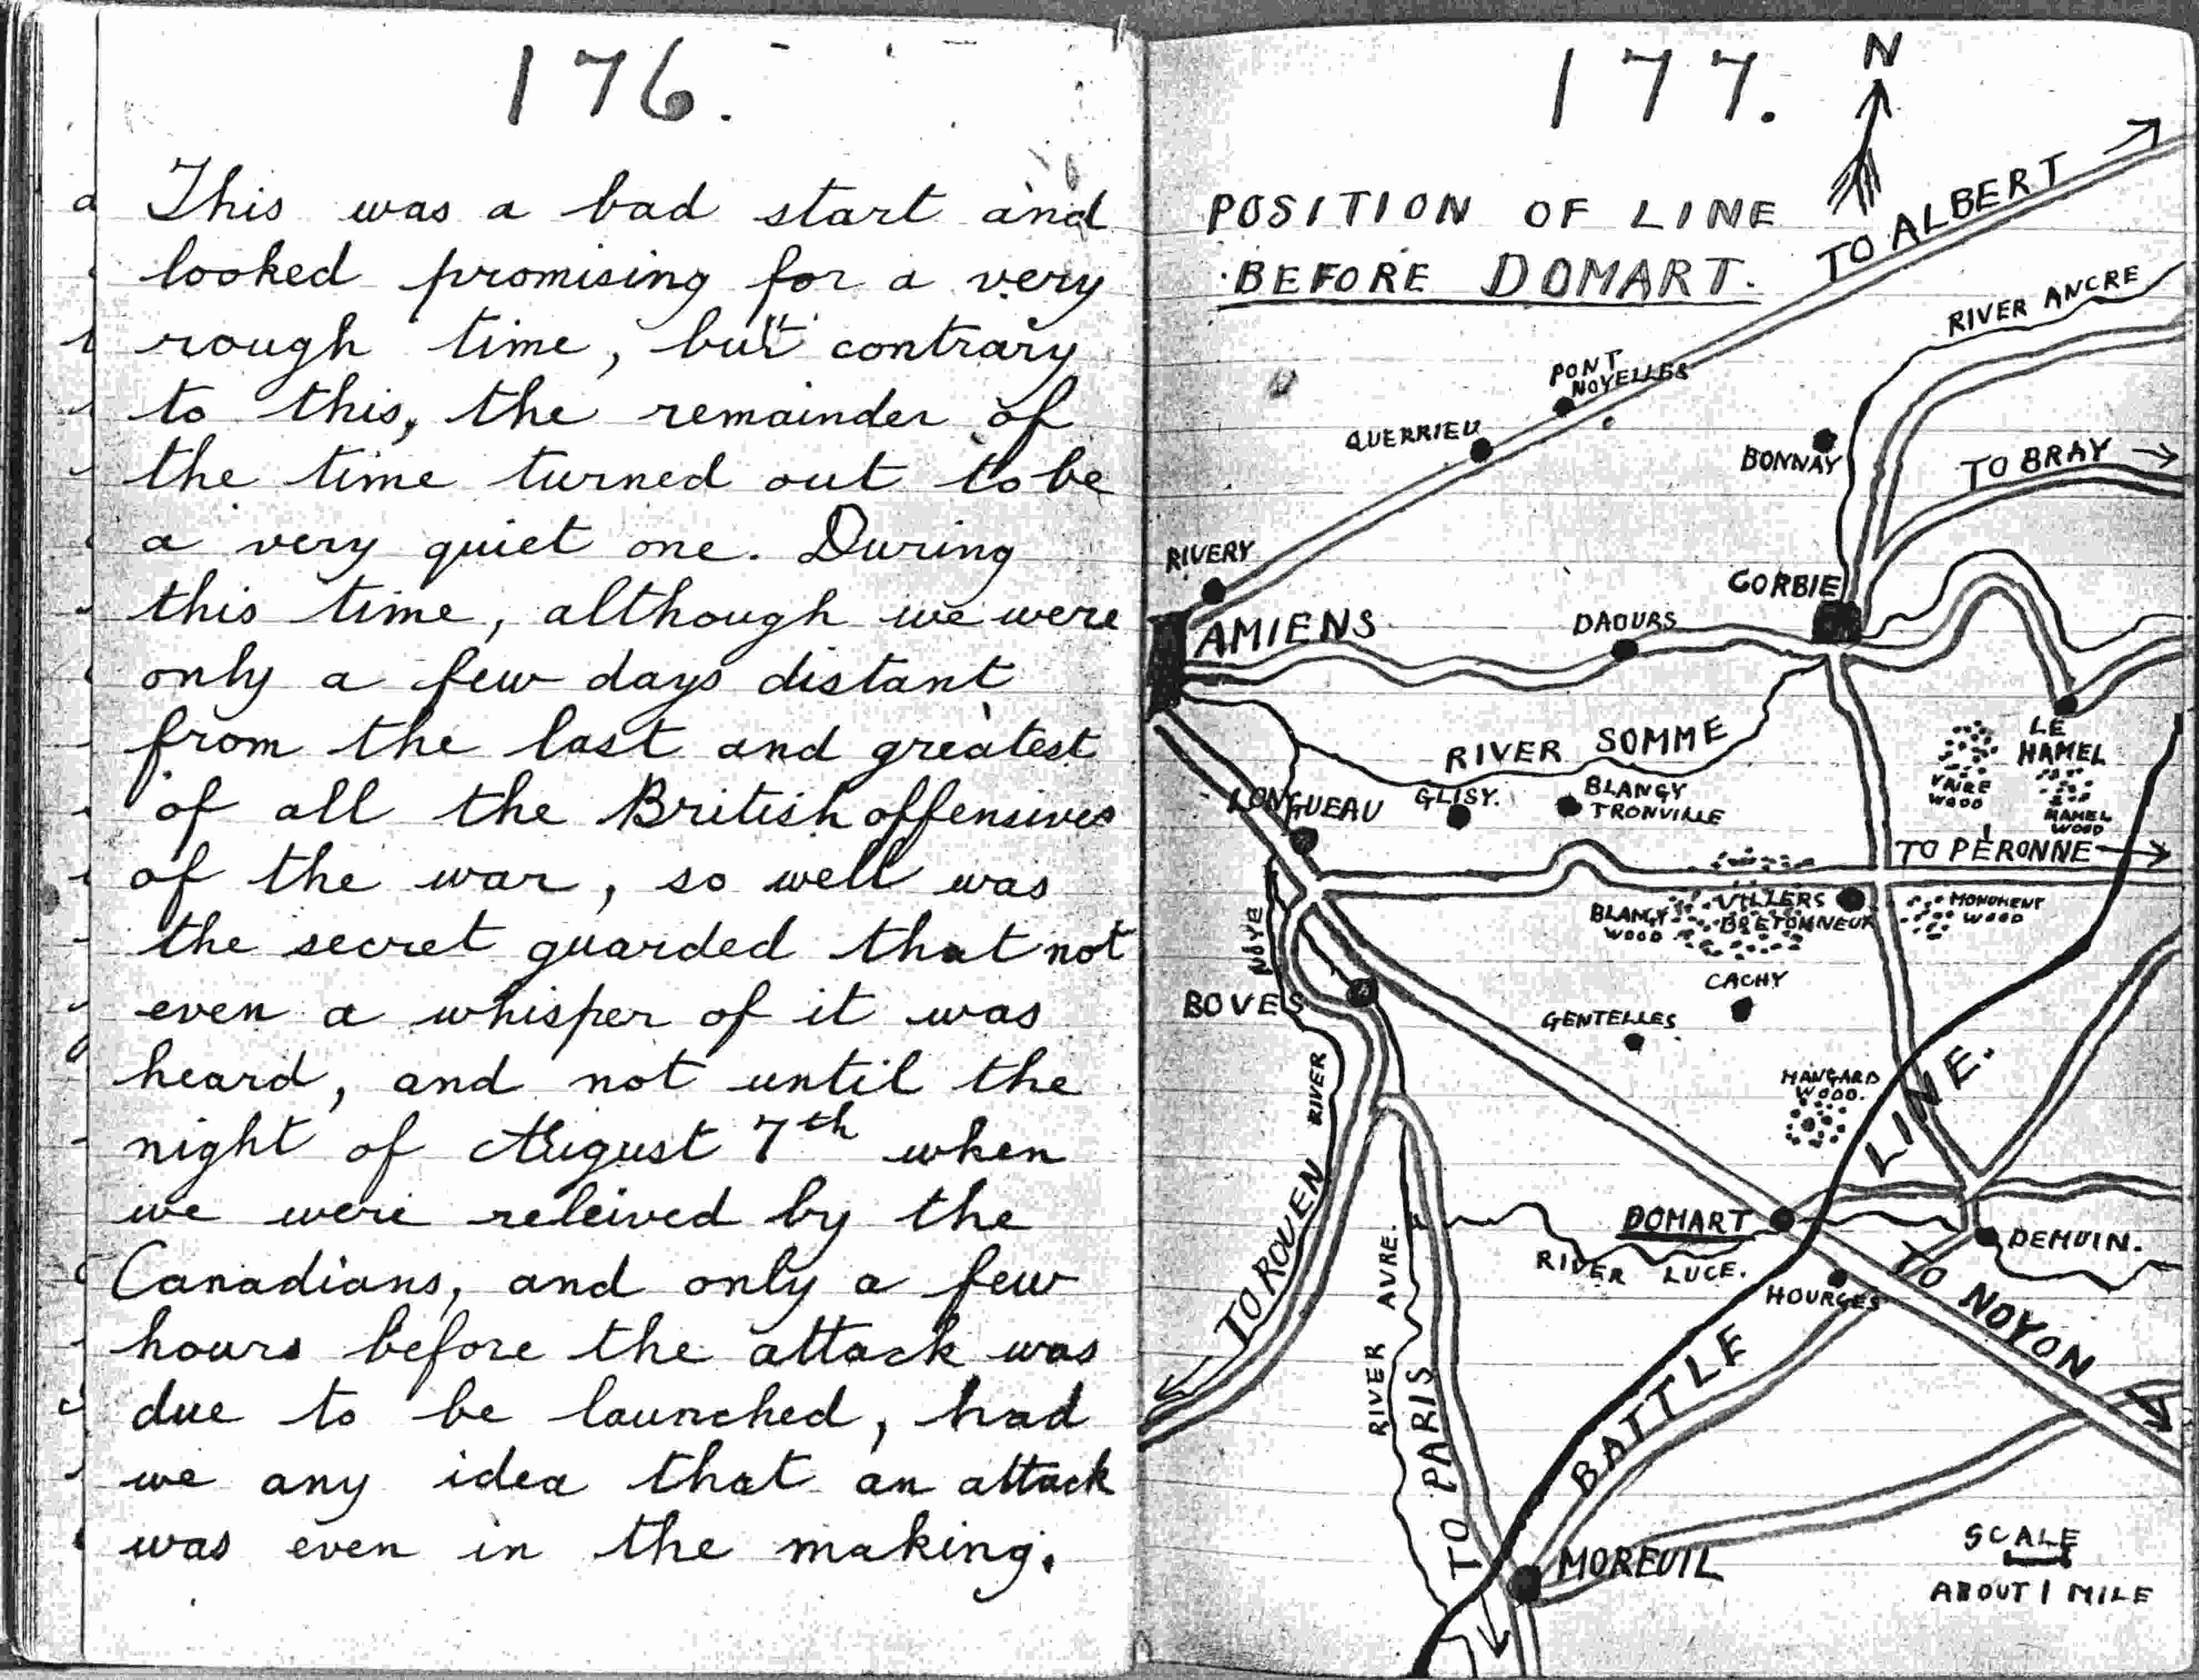 176.
This was a bad start and
looked promising for a very
rough time, but contrary
to this, the remainder of
the time turned out to be
a very quiet one. During
this time, although we were
only a few days distant
from the last and greatest
of all the British offensives
of the war, so well was
the secret guarded that not
even a whisper of it was
heard, and not until the
night of August 7th when
we were releived by the
Canadians, and only a few
hours before the attack was
due to be launched, had
we any idea that an attack
was even in the making.
177.
N
POSITION OF LINE
BEFORE DOMART.
TO ALBERT
RIVER ANCRE
PONT
NOYELLES
QUERRIEU
BONNAY
TO BRAY
RIVERY
CORBIE
AMIENS
DAOURS
RIVER SOMME
LE
HAMEL
VAIRE
WOOD
HAMEL
WOOD
LONGUEAU
GLISY.
BLANGY
TRONVILLE
TO PERONNE
VILLERS
BRETONNEUX
BLANGY
WOOD
MONUMENT
WOOD
NOYE
RIVER
BOVES
CACHY
GENTELLES
HANGARD
WOOD.
BATTLE LINE.
TO ROUEN
DOMART
DEMUIN.
RIVER LUCE.
RIVER AVRE.
HOURGES
TO NOYON
TO PARIS
MOREUIL
SCALE
ABOUT 1 MILE